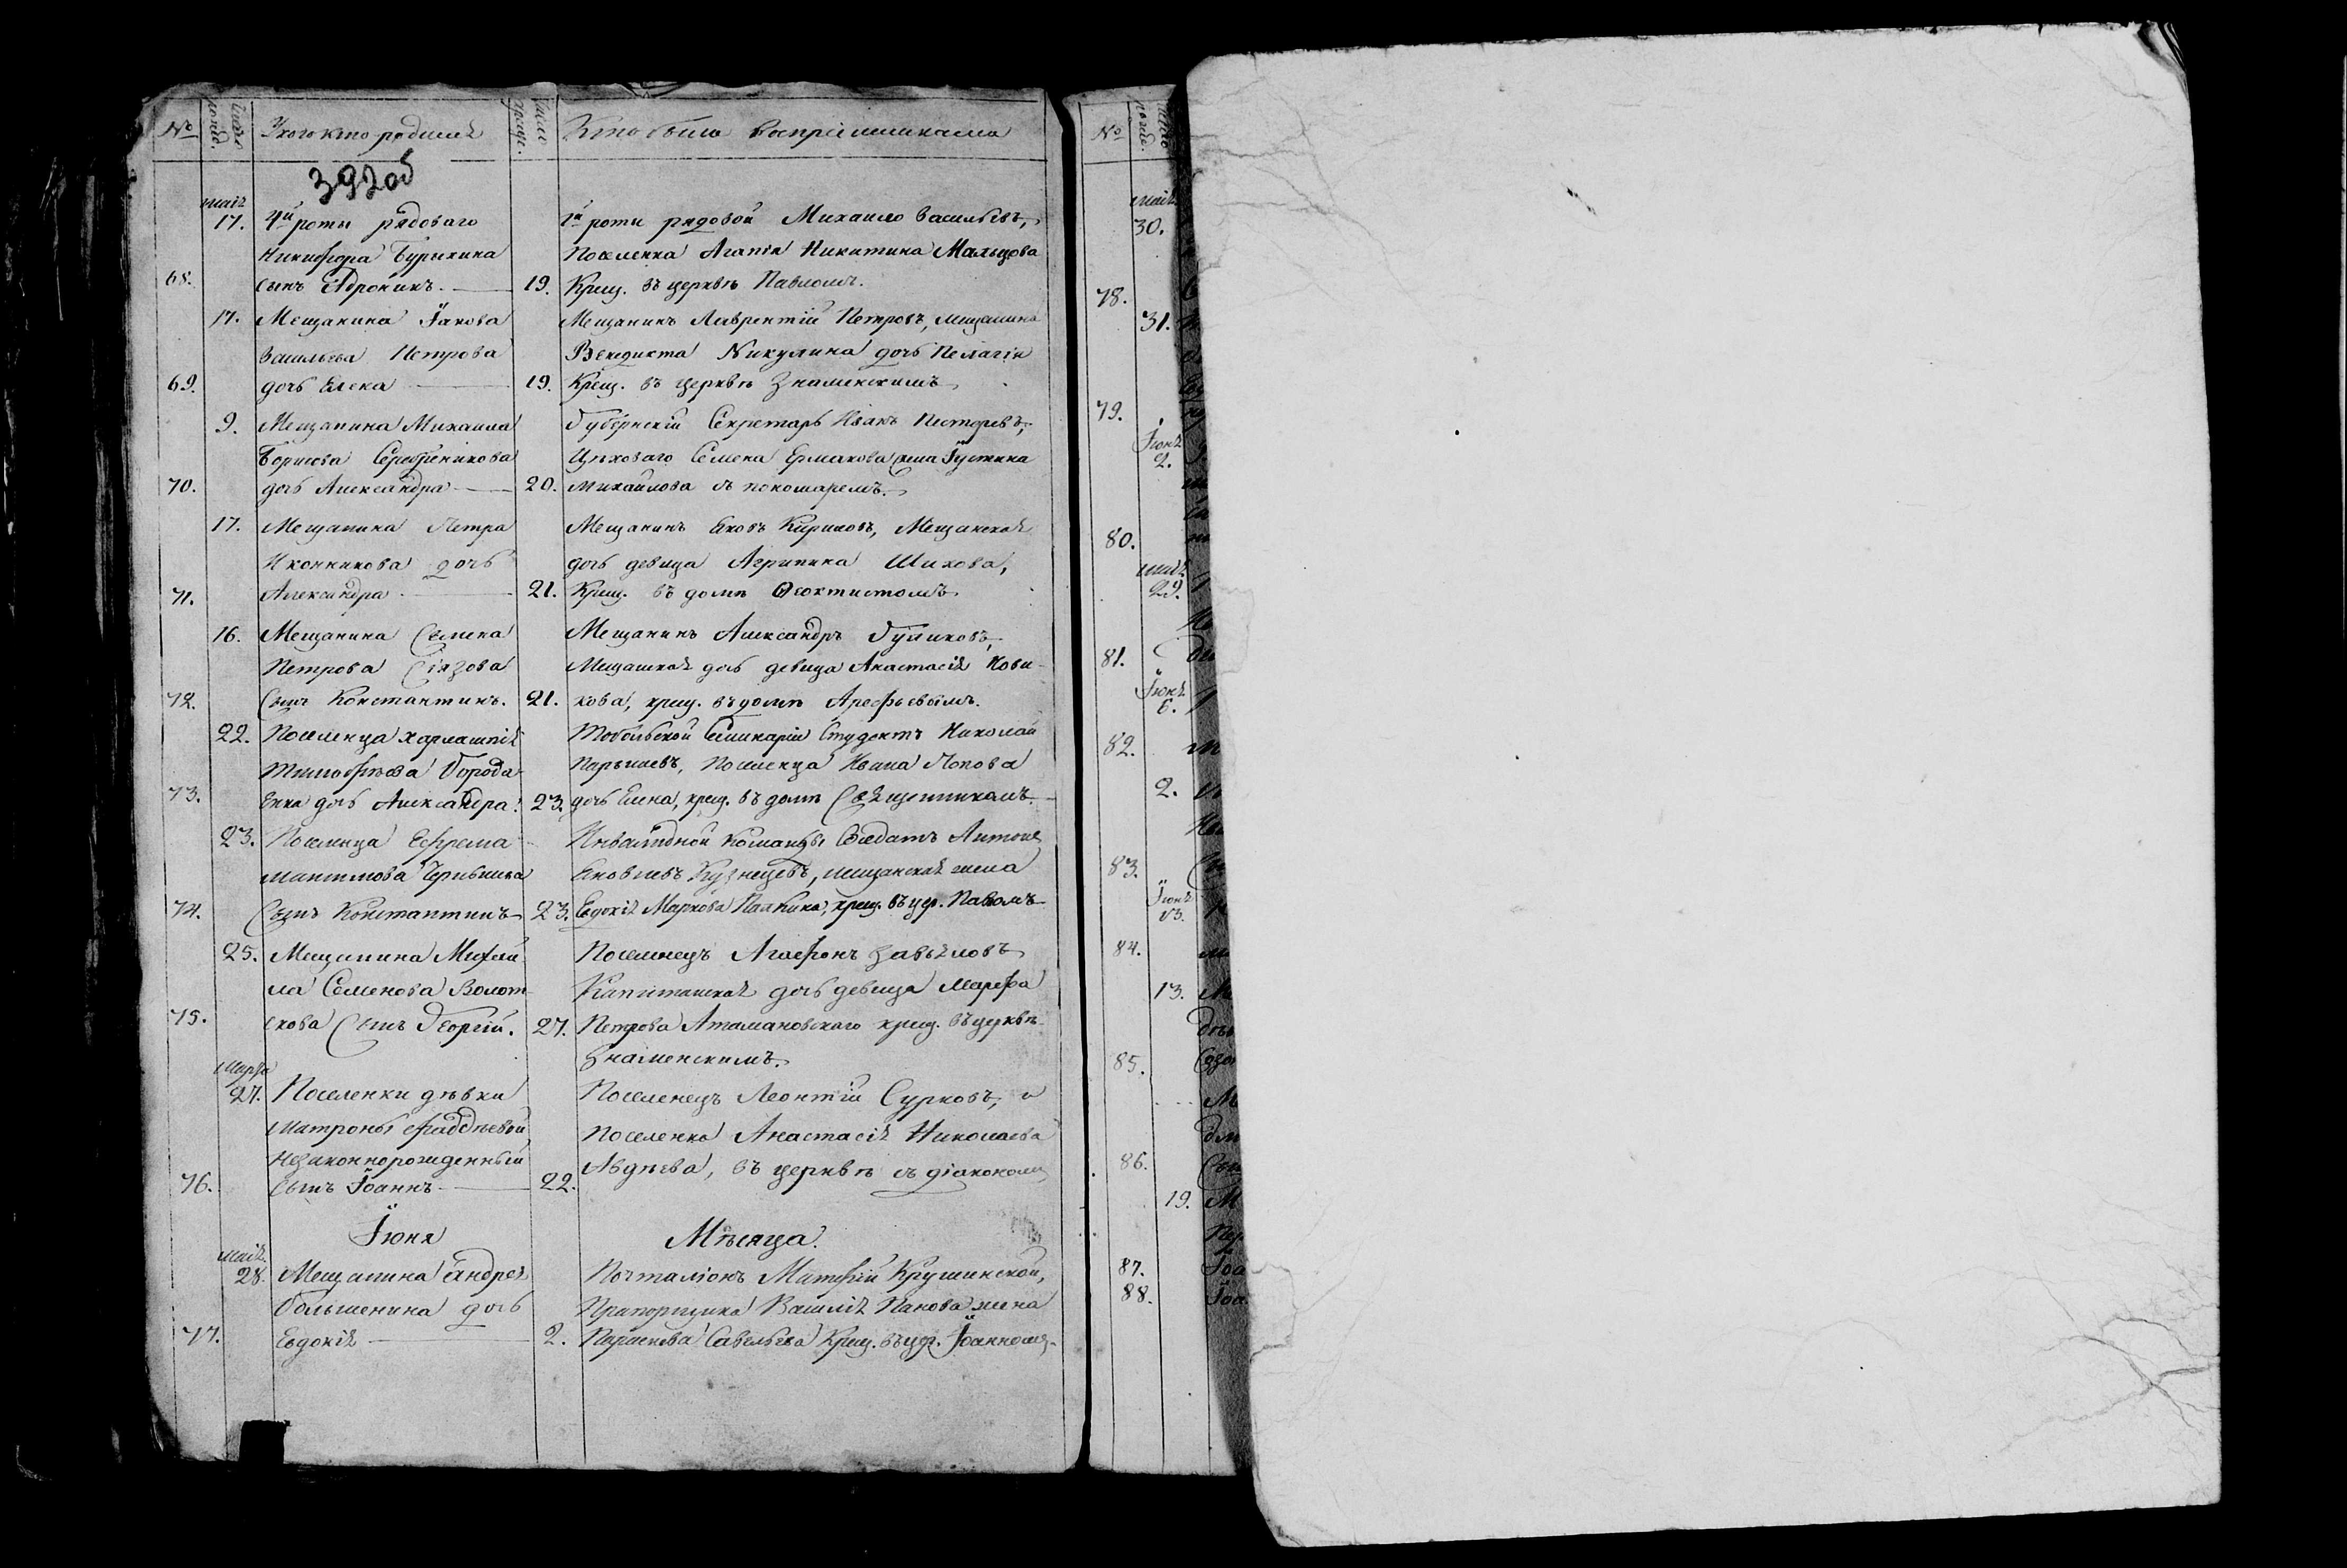 № Число рожд. У кого кто родился Число крещ. Кто были воспріемниками
392об
маія
17. 4й роты рядоваго 1й роты рядовой Михайло Васильевъ,
Никифора Бурыкина Поселенка Агапія Никитина Мальцова
68. сынъ Андроникъ. 19. Крещ. въ церквѣ Павломъ.
17. Мещанина Іакова Мещанинъ Лаврентій Петровъ, мещанина
Васильева Петрова Венедикта Никулина дочь Пелагія
69. дочь Елена 19. Крещ. въ церквѣ Знаменскимъ
9. Мещанина Михаила Губернскій Секретарь Иванъ Песторевъ,
Борисова Серебреникова Цеховаго Семена Ермакова жена Іустина
70. дочь Александра 20. Михайлова съ пономаремъ.
17. Мещанина Петра Мещанинъ Яковъ Кириловъ, Мещанская
Иконникова дочь дочь девица Агрипина Шихова,
71. Александра 21. Крещ. въ домѣ Ѳеоктистомъ
16. Мещанина Семена Мещанинъ Александръ Гуликовъ,
Петрова Сизова Мещанская дочь девица Анастасія Нови-
72. Сынъ Константинъ. 21. кова, крещ. въ домѣ Арефьевымъ.
22. Поселенца Харлампія Тобольской Семинаріи Студентъ Николай
Тимофѣева Борода- Парышевъ, Поселенца Ивана Попова
73. енка дочь Александра. 23. дочь Елена, крещ. въ домѣ Священникомъ.
23. Поселенца Ефрема Инвалидной Команды Солдатъ Антонъ
Мантилова Яковлевъ Кузнецовъ, мещанская жена
74. Сынъ Константинъ 23. Евдокія Маркова Палкина, крещ. въ цер. Павломъ
25. Мещанина Михай- Поселенецъ Агафонъ Завьяловъ
ла Семенова Волот- Капитанская дочь девица Марфа
75. скова Сынъ Георгій. 27. Петрова Атамановскаго крещ. въ церквѣ
Знаменскимъ.
Марта
27. Поселенки дѣвки Поселенецъ Леонтій Сурковъ, и
Матроны Фаддѣевой, Поселенка Анастасія Николаева
незаконнорожденный Авдѣева, въ церквѣ съ діакономъ
76. сынъ Іоаннъ 22.
Іюня Мѣсяца.
маія
28. Мещанина Андрея Почталіонъ Матфій Крушинской,
Большенина дочь Прапорщика Василія Панова жена
77. Евдокія 2. Парасковья Савельева Крещ. въ цер. Іоанномъ
№ Число рожд.
маія
30.
78.
31.
79.
Іюня
2.
80.
маія
29.
81.
Іюня
6.
82.
2.
83.
Іюня
13.
84.
13.
85.
86.
19.
87.
88.